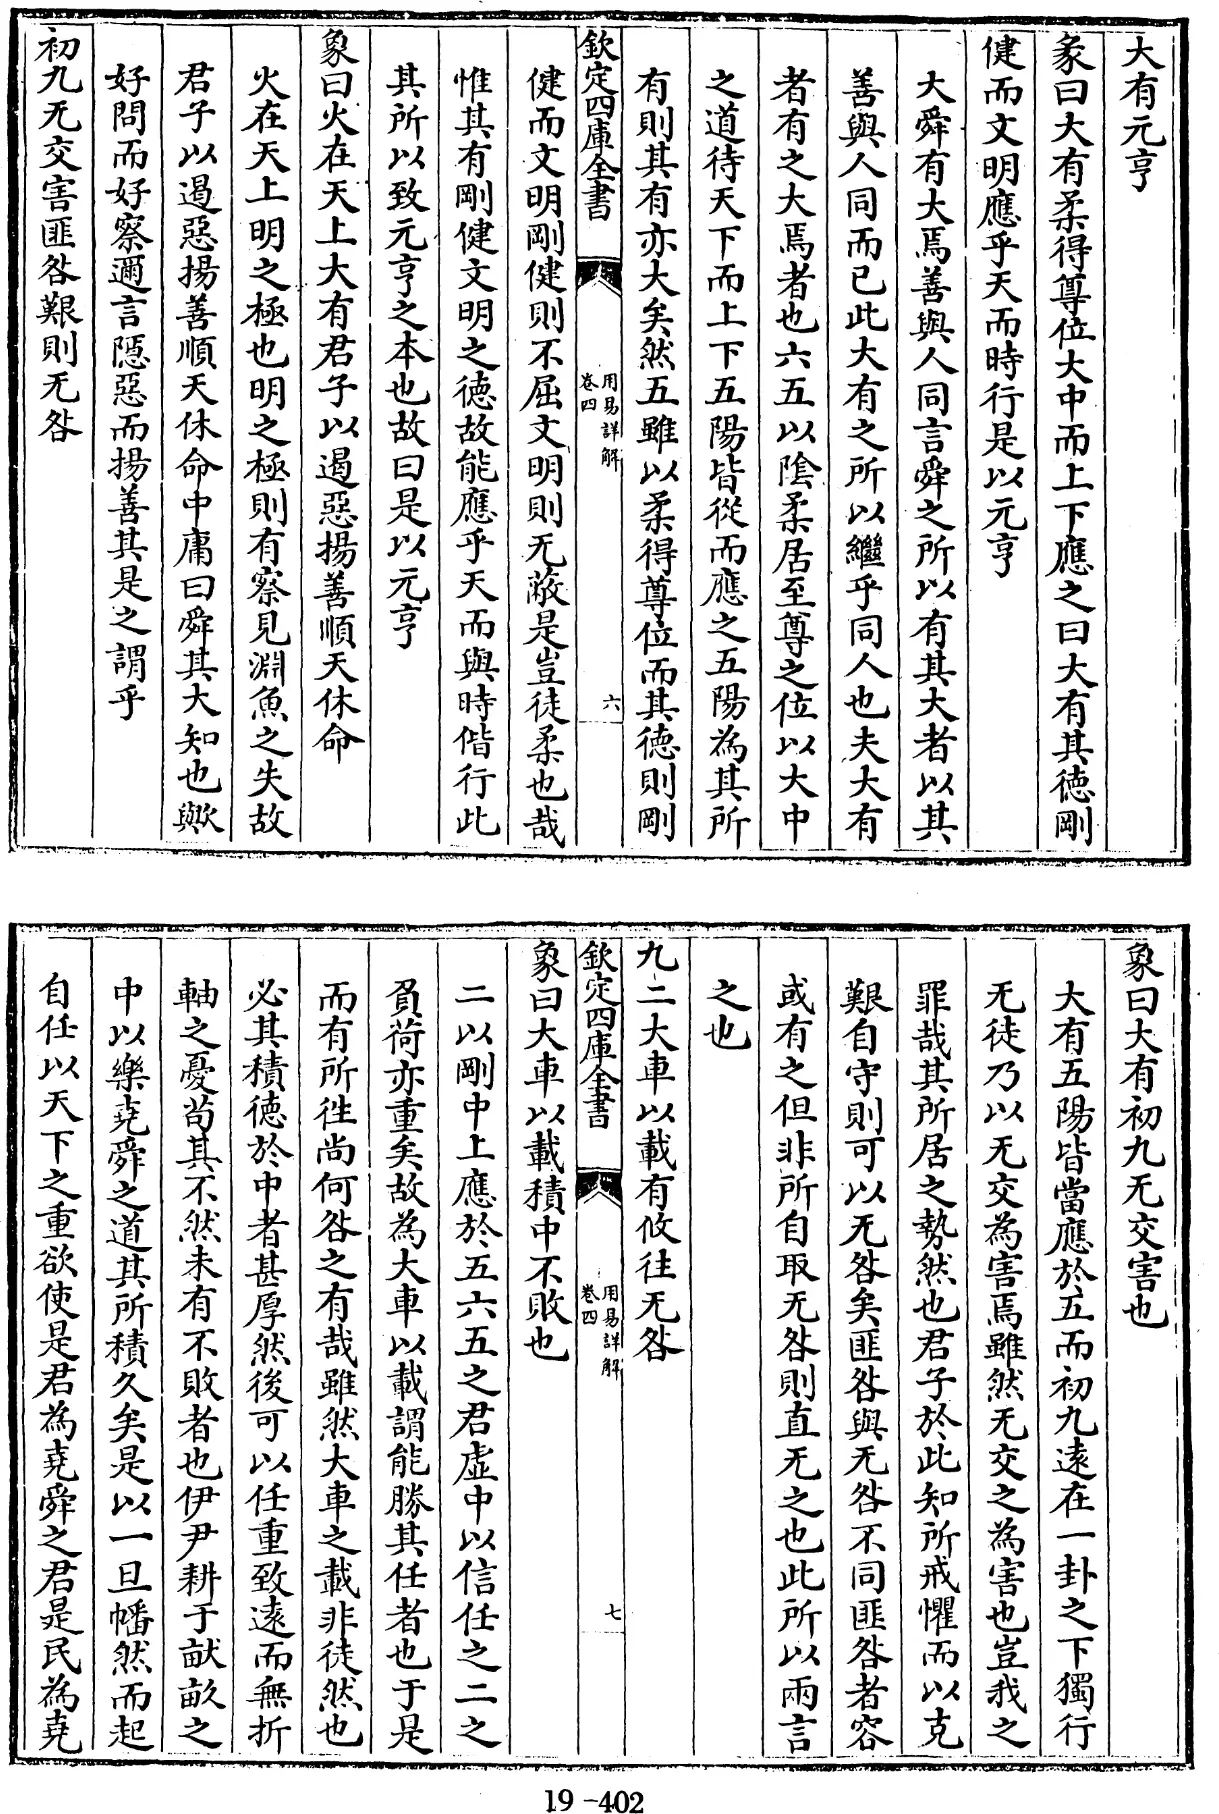 大有元亨
彖曰大有柔得尊位大中而上下應之曰大有其德剛
健而文明應乎天而時行是以元亨
大舜有大焉善與人同言舜之所以有其大者以其
善與人同而已此大有之所以繼乎同人也夫大有
者有之大焉者也六五以陰柔居至尊之位以大中
之道待天下而上下五陽皆從而應之五陽為其所
有則其有亦大矣然五雖以柔得尊位而其德則剛
欽定四庫全書
用易詳解
卷四
六
健而文明剛健則不屈文明則无蔽是豈徒柔也哉
惟其有剛健文明之德故能應乎天而與時偕行此
其所以致元亨之本也故曰是以元亨
象曰火在天上大有君子以遏惡揚善順天休命
火在天上明之極也明之極則有察見淵魚之失故
君子以遏惡揚善順天休命中庸曰舜其大知也歟
好問而好察邇言隱惡而揚善其是之謂乎
初九无交害匪咎艱則无咎
象曰大有初九无交害也
大有五陽皆當應於五而初九逺在一卦之下獨行
无徒乃以无交為害焉雖然无交之為害也豈我之
罪哉其所居之勢然也君子於此知所戒懼而以克
艱自守則可以无咎矣匪咎與无咎不同匪咎者容
或有之但非所自取无咎則直无之也此所以兩言
之也
九二大車以載有攸往无咎
欽定四庫全書
用易詳解
卷四
七
象曰大車以載積中不敗也
二以剛中上應於五六五之君虛中以信任之二之
負荷亦重矣故為大車以載謂能勝其任者也于是
而有所徃尚何咎之有哉雖然大車之載非徒然也
必其積德於中者甚厚然後可以任重致逺而無折
軸之憂苟其不然未有不敗者也伊尹耕于畎畝之
中以樂堯舜之道其所積久矣是以一旦幡然而起
自任以天下之重欲使是君為堯舜之君是民為堯
19-402